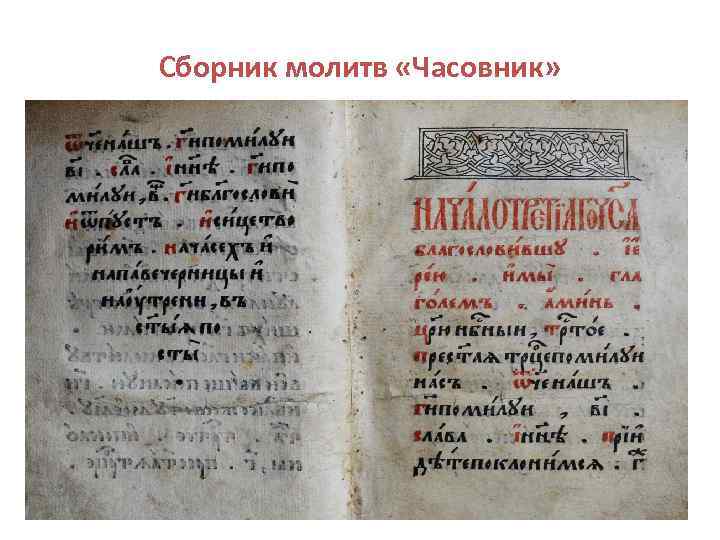 Сборник молитв «Часовник»
ѿч҃енашъ. гипоми́луи
в҃і. сла. ін҃нѣ. гипо
ми́луи, в҃. гибл҃гослови
иѿпустъ. иси́цество
ри́мъ. начасехъ и
напавечерницы и
наоутрени, въ
ст҃ыѧ по
сты
нача́лотретіагочса
благослови́вшу. іе
рею. имы́. гла
го́лемъ. ами́нь.
цр҃ин҃бныи, трто́е.
прест҃аѧтрцепоми́луи
на́съ. ѿч҃ена́шъ.
гипоми́луи, в҃і.
сла́ва. ін҃нѣ. прїи
дѣ́тепоклони́мсѧ. г҃